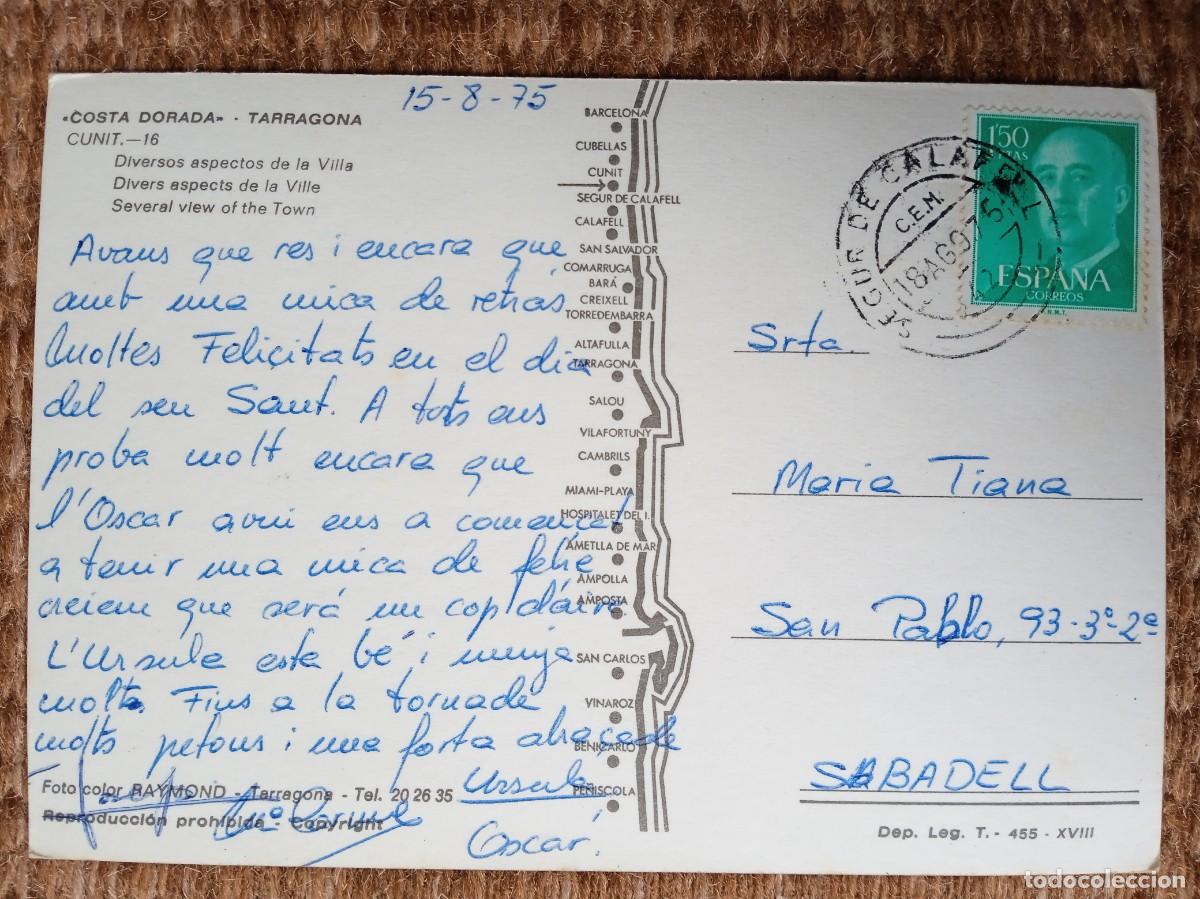 15-8-75
«COSTA DORADA» - TARRAGONA
CUNIT.—16
Diversos aspectos de la Villa
Divers aspects de la Ville
Several view of the Town
Avans que res i encara que
amb una mica de retras
Moltes Felicitats en el dia
del seu Sant. A tots ens
proba molt encara que
l'Oscar avui ens a començat
a tenir una mica de febre
creiem que será un cop d'aire
L'Ursula esta bé i menja
molta. Fins a la tornade
molts petons i una forta abraçade
Ursula
Mª Carme
Oscar.
Foto color RAYMOND - Tarragona - Tel. 20 26 35
Reproducción prohibida - Copyright
BARCELONA
CUBELLAS
CUNIT
SEGUR DE CALAFELL
CALAFELL
SAN SALVADOR
COMARRUGA
BARÁ
CREIXELL
TORREDEMBARRA
ALTAFULLA
TARRAGONA
SALOU
VILAFORTUNY
CAMBRILS
MIAMI-PLAYA
HOSPITALET DEL I.
AMETLLA DE MAR
AMPOLLA
AMPOSTA
SAN CARLOS
VINAROZ
BENICARLO
PEÑISCOLA
1'50
PTAS
ESPAÑA
CORREOS
F.N.M.T.
SEGUR DE CALAFELL
C.E.M.
18 AGO 75
Srta.
Maria Tiana
San Pablo, 93-3º-2ª
SABADELL
Dep. Leg. T. - 455 - XVIII
todocoleccion